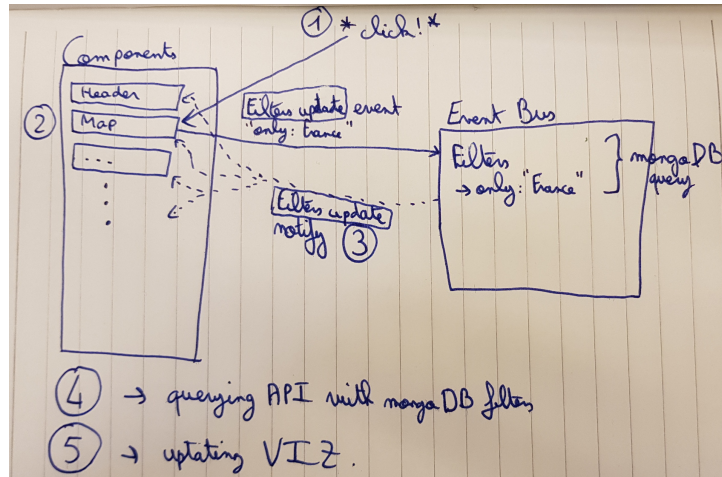 ① * click! *
Components
② Header
Map
...
Filters update event
"only: France"
Event Bus
Filters
→ only: "France"
mongoDB
query
Filters update
notify ③
④ → querying API with mongoDB filters
⑤ → uptating VIZ.